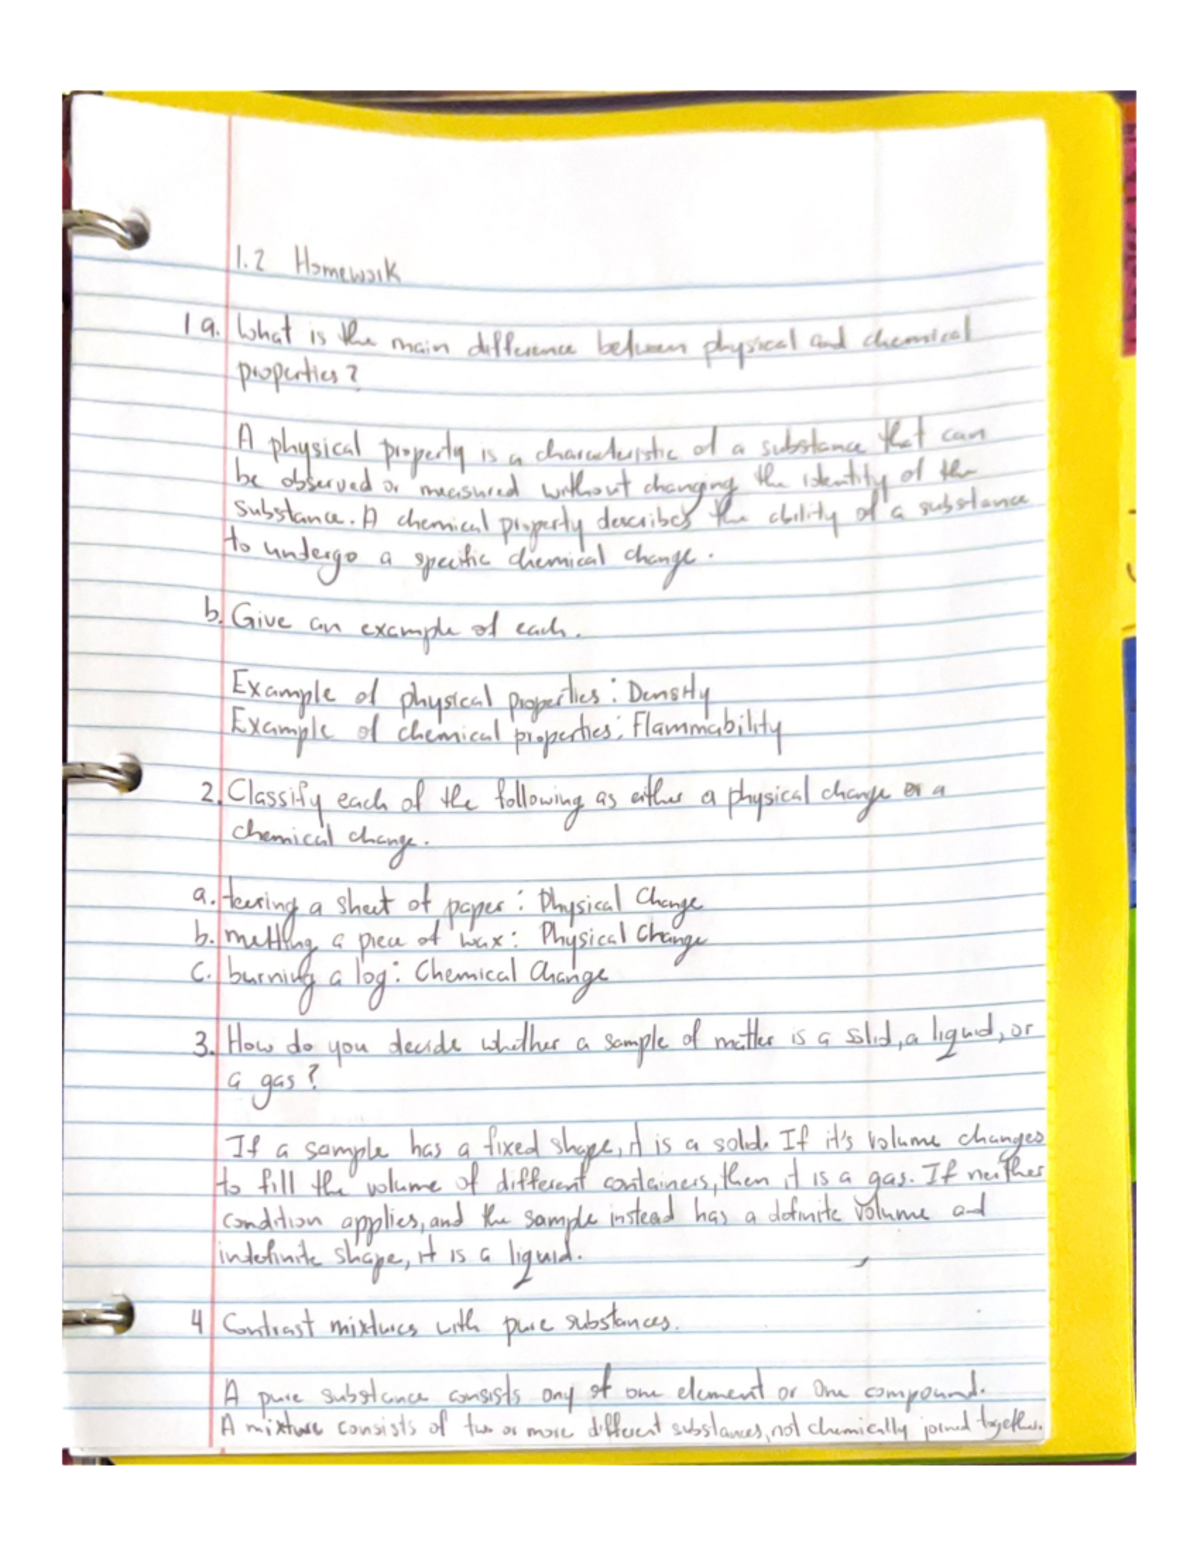 1.2 Homework
1a. What is the main difference between physical and chemical
properties?
A physical property is a characteristic of a substance that can
be observed or measured without changing the identity of the
substance. A chemical property describes the ability of a substance
to undergo a specific chemical change.
b. Give an example of each.
Example of physical properties: Density
Example of chemical properties: Flammability
2. Classify each of the following as either a physical change or a
chemical change.
a. tearing a sheet of paper: Physical Change
b. melting a piece of wax: Physical Change
c. burning a log: Chemical Change
3. How do you decide whether a sample of matter is a solid, a liquid, or
a gas?
If a sample has a fixed shape, it is a solid. If it's volume changes
to fill the volume of different containers, then it is a gas. If neither
condition applies, and the sample instead has a definite volume and
indefinite shape, it is a liquid.
4 Contrast mixtures with pure substances.
A pure substance consists ony of one element or one compound.
A mixture consists of two or more different substances, not chemically joined together.